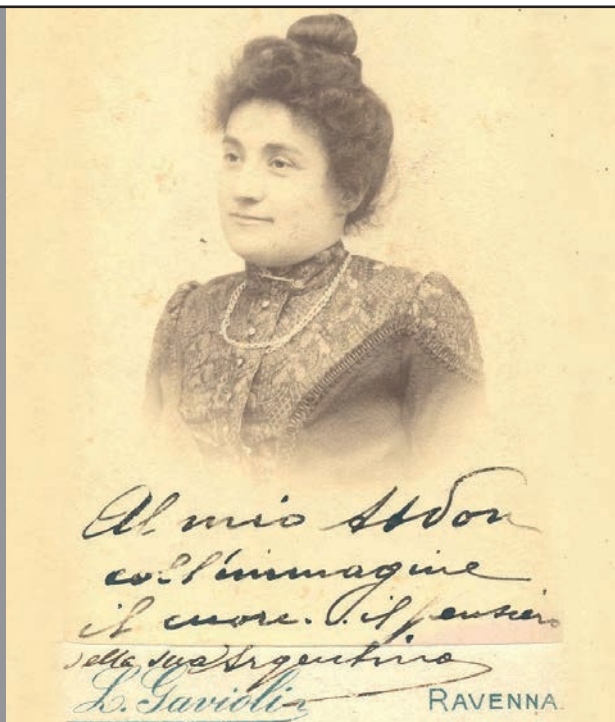 Al mio
coll'immagine
il cuore. il pensiero
della sua Argentina
L. Gavioli
RAVENNA.